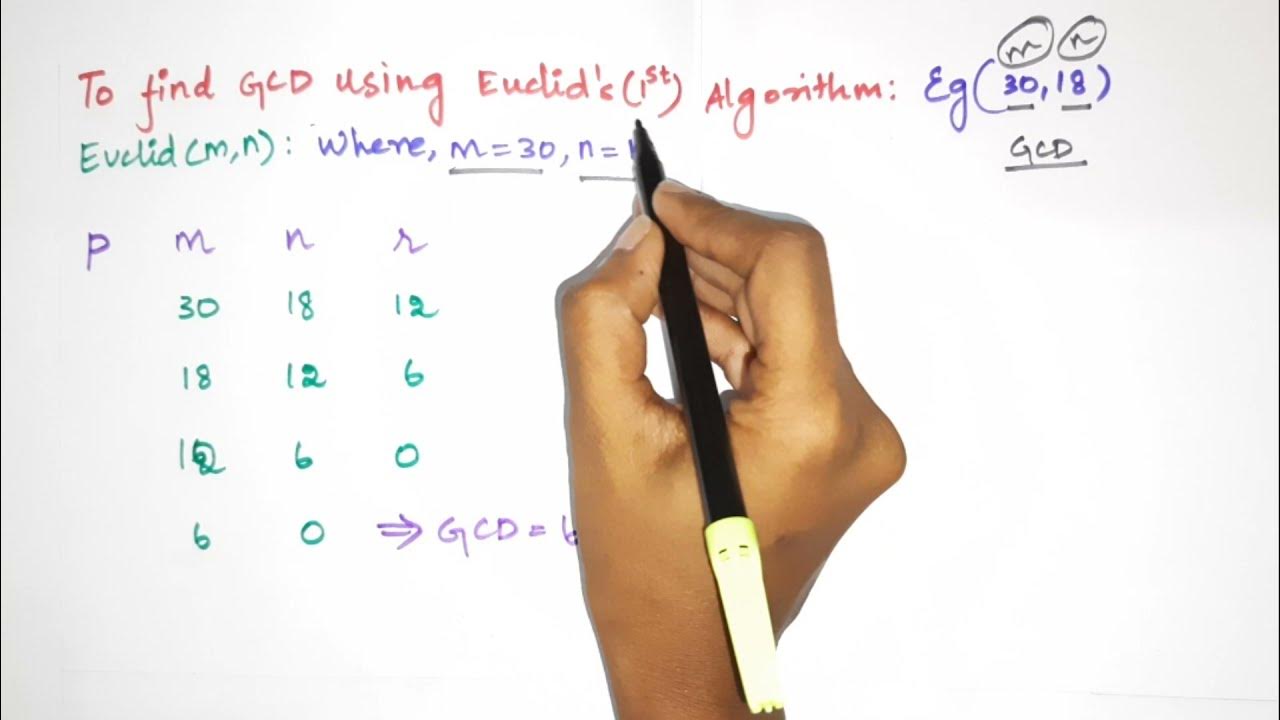 m n
To find GCD using Euclid's (1st) Algorithm: Eg (30, 18)
Euclid(m,n): Where, m=30, n=
GCD
P m n r
30 18 12
18 12 6
12 6 0
6 0 ⇒ GCD = 6